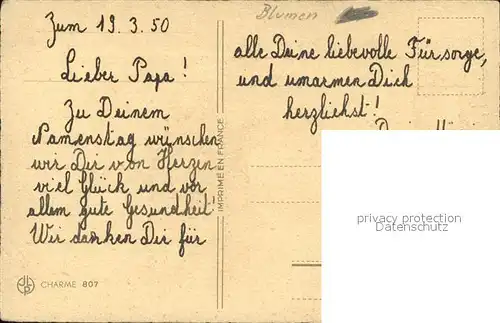 Zum 19.3.50
Lieber Papa!
Zu Deinem
Namenstag wünschen
wir Dir von Herzen
viel Glück und vor
allem gute Gesundheit!
Wir danken Dir für
CHARME 807
IMPRIMÉ EN FRANCE
Blumen
alle Deine liebevolle Fürsorge,
und umarmen Dich
herzlichst!
privacy protection
Datenschutz